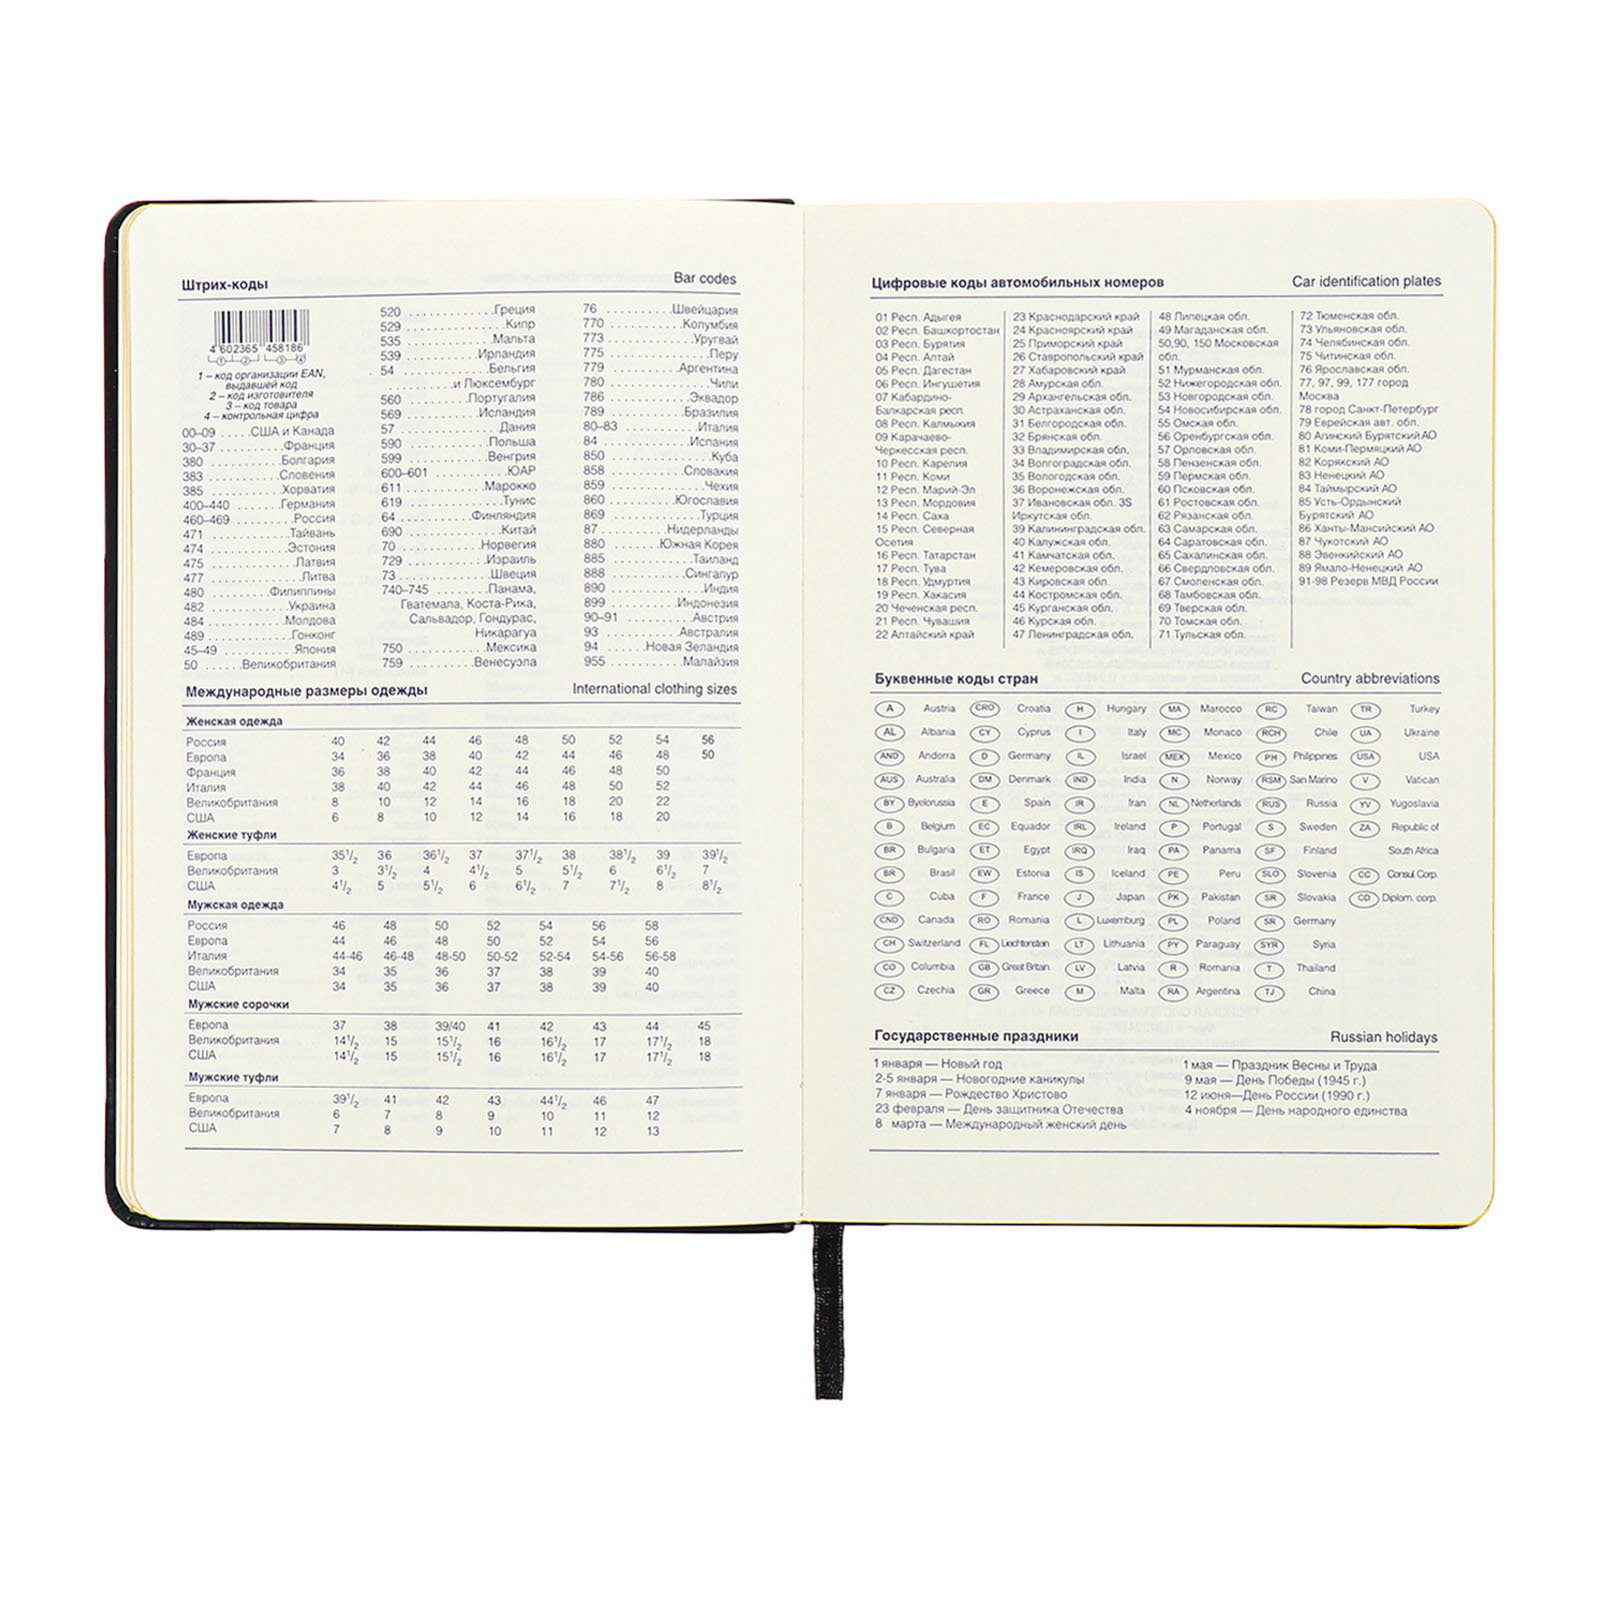 Штрих-коды Bar codes
4 602365 458186
1 2 3 4
1 – код организации EAN,
выдавшей код
2 – код изготовителя
3 – код товара
4 – контрольная цифра
00–09 .....США и Канада
30–37 ..........Франция
380 ..........Болгария
383 ..........Словения
385 ..........Хорватия
400–440 .......Германия
460–469 .........Россия
471 ............Тайвань
474 ............Эстония
475 .............Латвия
477 ..............Литва
480 ..........Филиппины
482 ............Украина
484 ............Молдова
489 ............Гонконг
45–49 ...........Япония
50 ......Великобритания
520 ............Греция
529 ..............Кипр
535 ............Мальта
539 ..........Ирландия
54 ............Бельгия
..........и Люксембург
560 ........Португалия
569 ..........Исландия
57 ..............Дания
590 ............Польша
599 ...........Венгрия
600–601 ...........ЮАР
611 ...........Марокко
619 .............Тунис
64 ..........Финляндия
690 .............Китай
70 ...........Норвегия
729 ...........Израиль
73 .............Швеция
740–745 ........Панама,
Гватемала, Коста-Рика,
Сальвадор, Гондурас,
Никарагуа
750 ...........Мексика
759 .........Венесуэла
76 ..........Швейцария
770 ..........Колумбия
773 ...........Уругвай
775 ..............Перу
779 .........Аргентина
780 ..............Чили
786 ...........Эквадор
789 ..........Бразилия
80–83 ..........Италия
84 ............Испания
850 ..............Куба
858 ..........Словакия
859 .............Чехия
860 .........Югославия
869 ............Турция
87 .........Нидерланды
880 .......Южная Корея
885 ...........Таиланд
888 ..........Сингапур
890 .............Индия
899 .........Индонезия
90–91 .........Австрия
93 ..........Австралия
94 .....Новая Зеландия
955 ..........Малайзия
Международные размеры одежды International clothing sizes
Женская одежда
Россия 40 42 44 46 48 50 52 54 56
Европа 34 36 38 40 42 44 46 48 50
Франция 36 38 40 42 44 46 48 50
Италия 38 40 42 44 46 48 50 52
Великобритания 8 10 12 14 16 18 20 22
США 6 8 10 12 14 16 18 20
Женские туфли
Европа 35 1/2 36 36 1/2 37 37 1/2 38 38 1/2 39 39 1/2
Великобритания 3 3 1/2 4 4 1/2 5 5 1/2 6 6 1/2 7
США 4 1/2 5 5 1/2 6 6 1/2 7 7 1/2 8 8 1/2
Мужская одежда
Россия 46 48 50 52 54 56 58
Европа 44 46 48 50 52 54 56
Италия 44-46 46-48 48-50 50-52 52-54 54-56 56-58
Великобритания 34 35 36 37 38 39 40
США 34 35 36 37 38 39 40
Мужские сорочки
Европа 37 38 39/40 41 42 43 44 45
Великобритания 14 1/2 15 15 1/2 16 16 1/2 17 17 1/2 18
США 14 1/2 15 15 1/2 16 16 1/2 17 17 1/2 18
Мужские туфли
Европа 39 1/2 41 42 43 44 1/2 46 47
Великобритания 6 7 8 9 10 11 12
США 7 8 9 10 11 12 13
Цифровые коды автомобильных номеров Car identification plates
01 Респ. Адыгея
02 Респ. Башкортостан
03 Респ. Бурятия
04 Респ. Алтай
05 Респ. Дагестан
06 Респ. Ингушетия
07 Кабардино-
Балкарская респ.
08 Респ. Калмыкия
09 Карачаево-
Черкесская респ.
10 Респ. Карелия
11 Респ. Коми
12 Респ. Марий-Эл
13 Респ. Мордовия
14 Респ. Саха
15 Респ. Северная
Осетия
16 Респ. Татарстан
17 Респ. Тува
18 Респ. Удмуртия
19 Респ. Хакасия
20 Чеченская респ.
21 Респ. Чувашия
22 Алтайский край
23 Краснодарский край
24 Красноярский край
25 Приморский край
26 Ставропольский край
27 Хабаровский край
28 Амурская обл.
29 Архангельская обл.
30 Астраханская обл.
31 Белгородская обл.
32 Брянская обл.
33 Владимирская обл.
34 Волгоградская обл.
35 Вологодская обл.
36 Воронежская обл.
37 Ивановская обл. 3S
Иркутская обл.
39 Калининградская обл.
40 Калужская обл.
41 Камчатская обл.
42 Кемеровская обл.
43 Кировская обл.
44 Костромская обл.
45 Курганская обл.
46 Курская обл.
47 Ленинградская обл.
48 Липецкая обл.
49 Магаданская обл.
50,90, 150 Московская
обл.
51 Мурманская обл.
52 Нижегородская обл.
53 Новгородская обл.
54 Новосибирская обл.
55 Омская обл.
56 Оренбургская обл.
57 Орловская обл.
58 Пензенская обл.
59 Пермская обл.
60 Псковская обл.
61 Ростовская обл.
62 Рязанская обл.
63 Самарская обл.
64 Саратовская обл.
65 Сахалинская обл.
66 Свердловская обл.
67 Смоленская обл.
68 Тамбовская обл.
69 Тверская обл.
70 Томская обл.
71 Тульская обл.
72 Тюменская обл.
73 Ульяновская обл.
74 Челябинская обл.
75 Читинская обл.
76 Ярославская обл.
77, 97, 99, 177 город
Москва
78 город Санкт-Петербург
79 Еврейская авт. обл.
80 Агинский Бурятский АО
81 Коми-Пермяцкий АО
82 Корякский АО
83 Ненецкий АО
84 Таймырский АО
85 Усть-Ордынский
Бурятский АО
86 Ханты-Мансийский АО
87 Чукотский АО
88 Эвенкийский АО
89 Ямало-Ненецкий АО
91-98 Резерв МВД России
Буквенные коды стран Country abbreviations
A Austria CRO Croatia H Hungary MA Marocco RC Taiwan TR Turkey
AL Albania CY Cyprus I Italy MC Monaco RCH Chile UA Ukraine
AND Andorra D Germany IL Israel MEX Mexico PH Philippines USA USA
AUS Australia DM Denmark IND India N Norway RSM San Marino V Vatican
BY Byelorussia E Spain IR Iran NL Netherlands RUS Russia YV Yugoslavia
B Belgium EC Equador IRL Ireland P Portugal S Sweden ZA Republic of
BR Bulgaria ET Egypt IRQ Iraq PA Panama SF Finland South Africa
BR Brasil EW Estonia IS Iceland PE Peru SLO Slovenia CC Consul Corp.
C Cuba F France J Japan PK Pakistan SR Slovakia CD Diplom. corp.
CND Canada RO Romania L Luxemburg PL Poland SR Germany
CH Switzerland FL Liechtenstein LT Lithuania PY Paraguay SYR Syria
CO Columbia GB Great Britain LV Latvia R Romania T Thailand
CZ Czechia GR Greece M Malta RA Argentina TJ China
Государственные праздники Russian holidays
1 января — Новый год
2-5 января — Новогодние каникулы
7 января — Рождество Христово
23 февраля — День защитника Отечества
8 марта — Международный женский день
1 мая — Праздник Весны и Труда
9 мая — День Победы (1945 г.)
12 июня—День России (1990 г.)
4 ноября — День народного единства